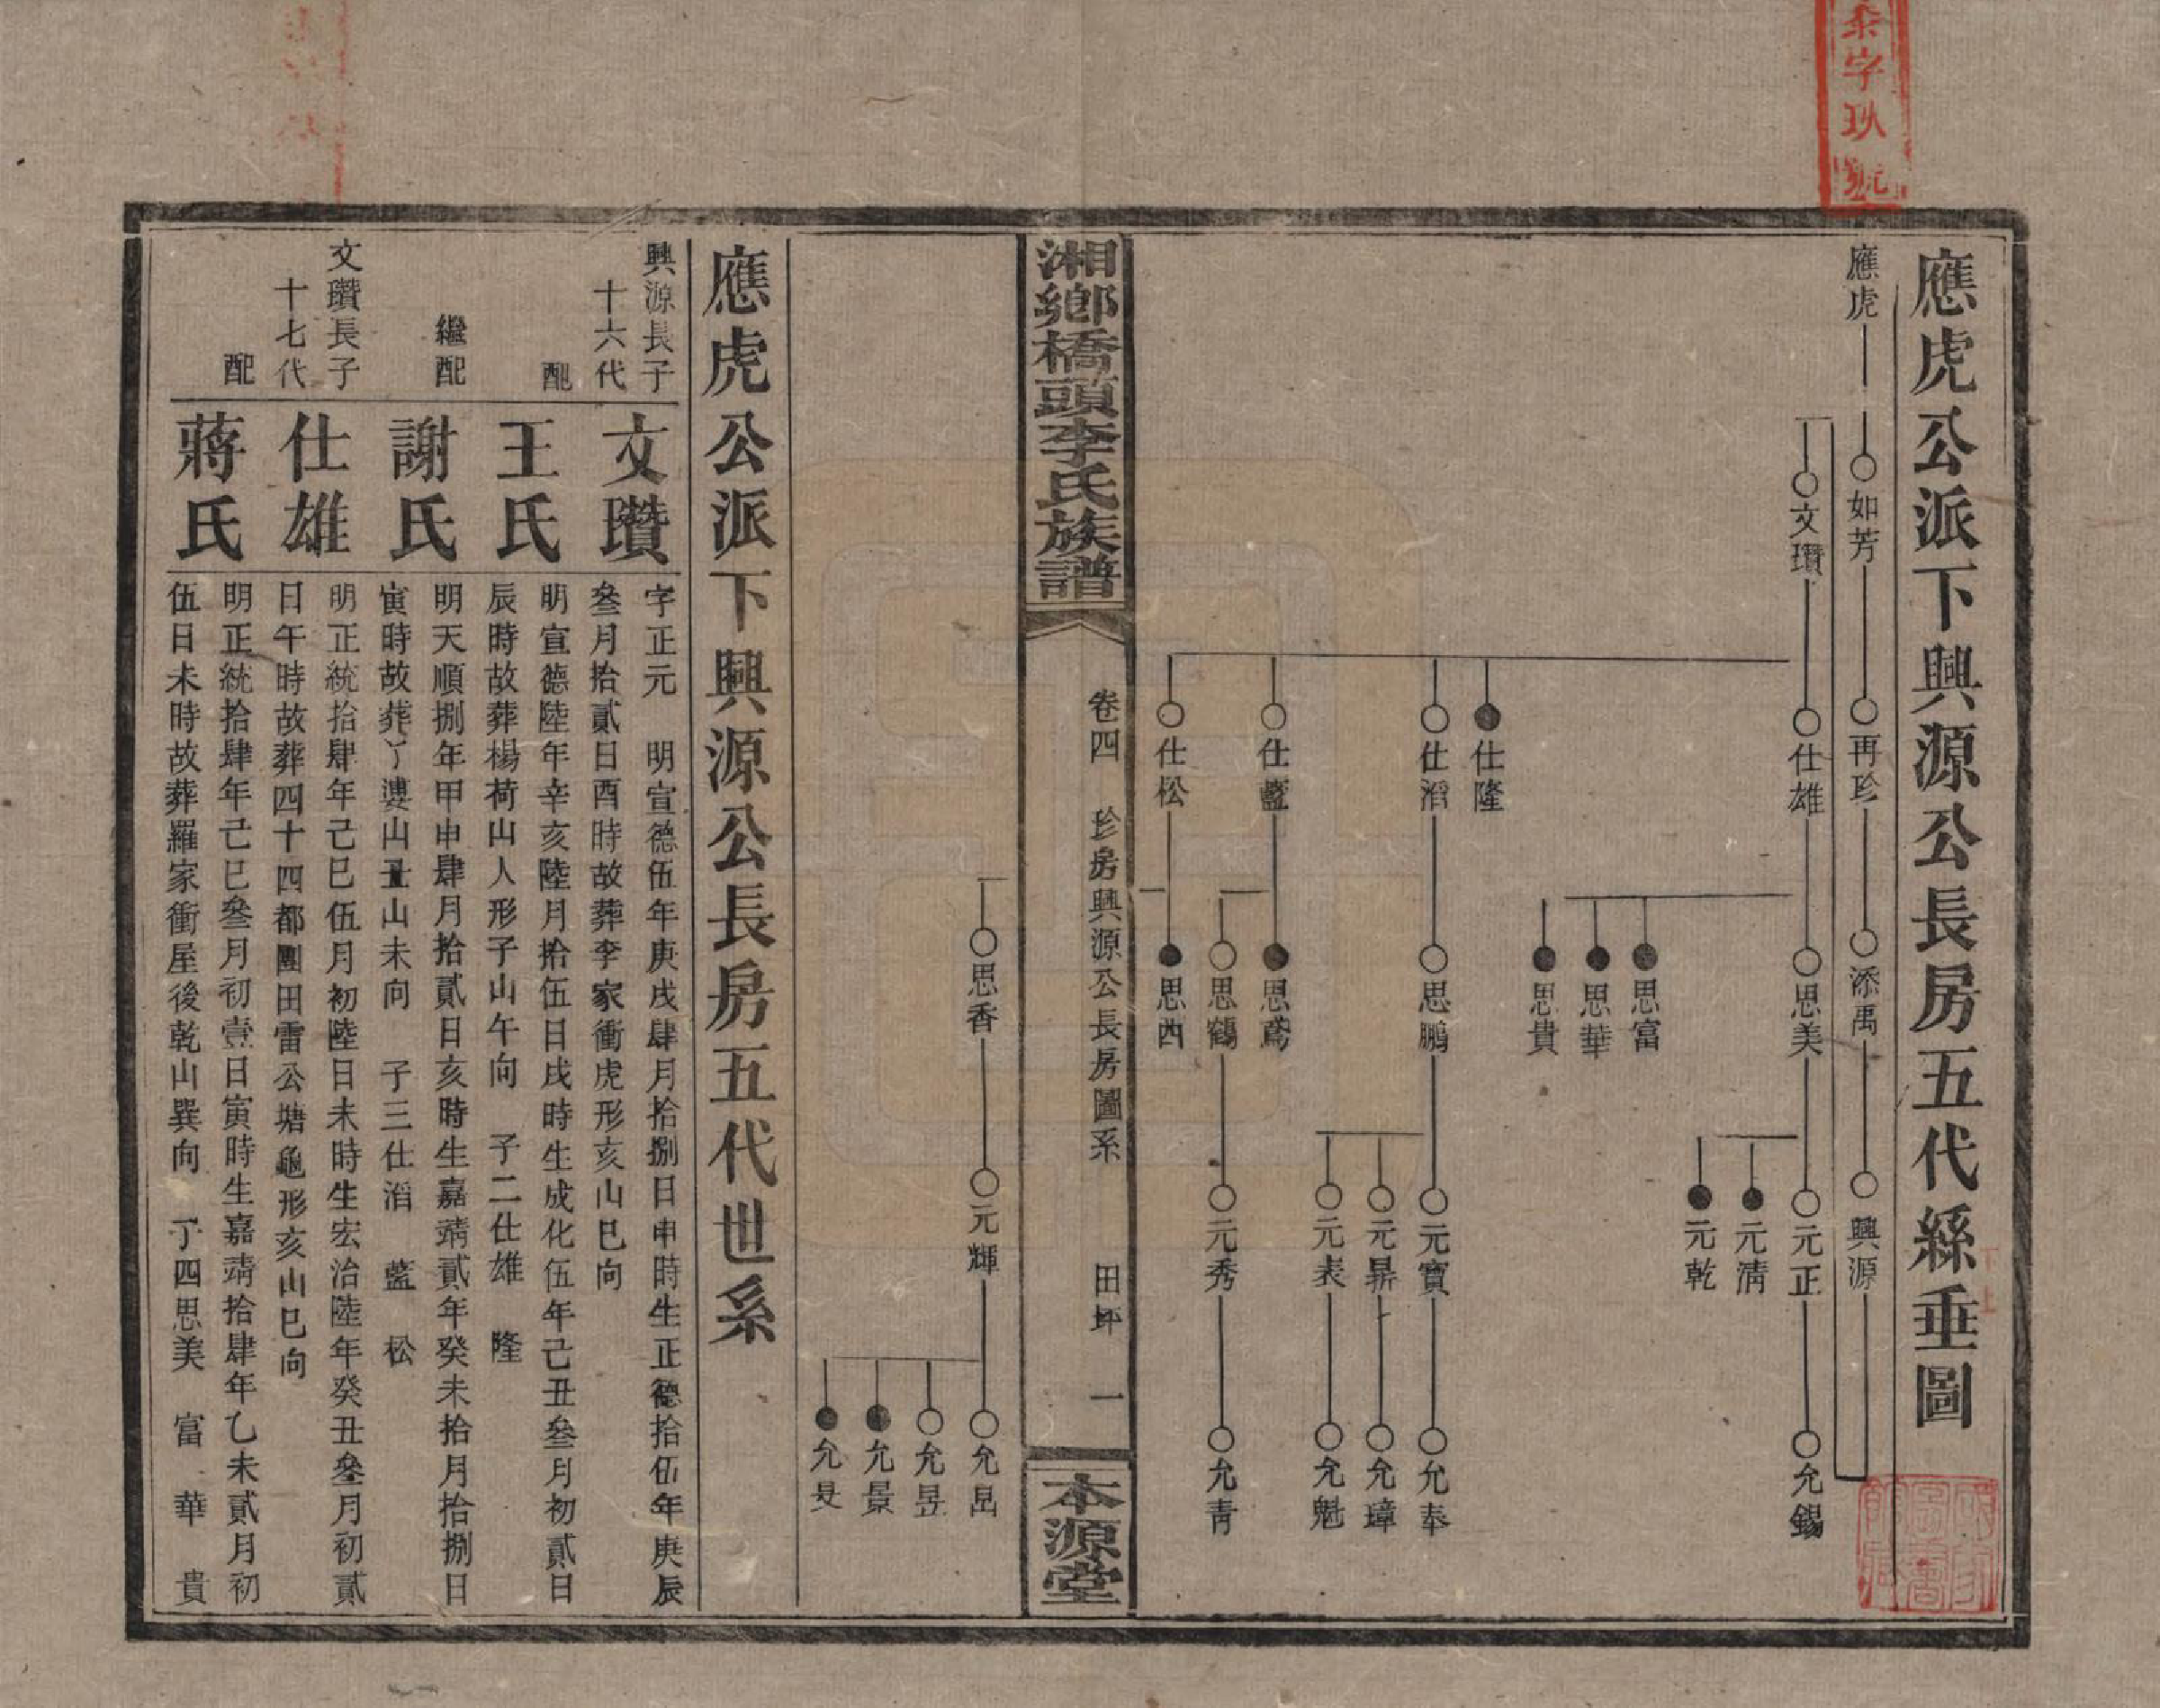 應虎公派下興源公長房五代絲垂圖
應虎
如芳
再珍
添禹
興源
文瓚
仕雄
思美
元正
允錫
元清
元乾
思富
思華
思貴
仕隆
仕滔
思鵬
元寶
允奉
元昪
允璋
元表
允魁
仕藍
思鳶
思鶴
元秀
允青
仕松
思西
湘鄉橋頭李氏族譜
卷四
珍房興源公長房圖系
田坪
一
本源堂
思香
元輝
允昆
允昱
允景
允旻
應虎公派下興源公長房五代世系
興源長子
十六代
文瓚
字正元 明宣德伍年庚戌肆月拾捌日申時生正德拾伍年庚辰
叄月拾貳日酉時故葬李家衝虎形亥山巳向
配
王氏
明宣德陸年辛亥陸月拾伍日戌時生成化伍年己丑叄月初貳日
辰時故葬楊荷山人形子山午向 子二仕雄 隆
繼配
謝氏
明天順捌年甲申肆月拾貳日亥時生嘉靖貳年癸未拾月拾捌日
寅時故葬丫婆山丑山未向 子三仕滔 藍 松
文瓚長子
十七代
仕雄
明正統拾肆年己巳伍月初陸日未時生宏治陸年癸丑叄月初貳
日午時故葬四十四都團田雷公塘龜形亥山巳向
配
蔣氏
明正統拾肆年己巳叄月初壹日寅時生嘉靖拾肆年乙未貳月初
伍日未時故葬羅家衝屋後乾山巽向 子四思美 富 華 貴